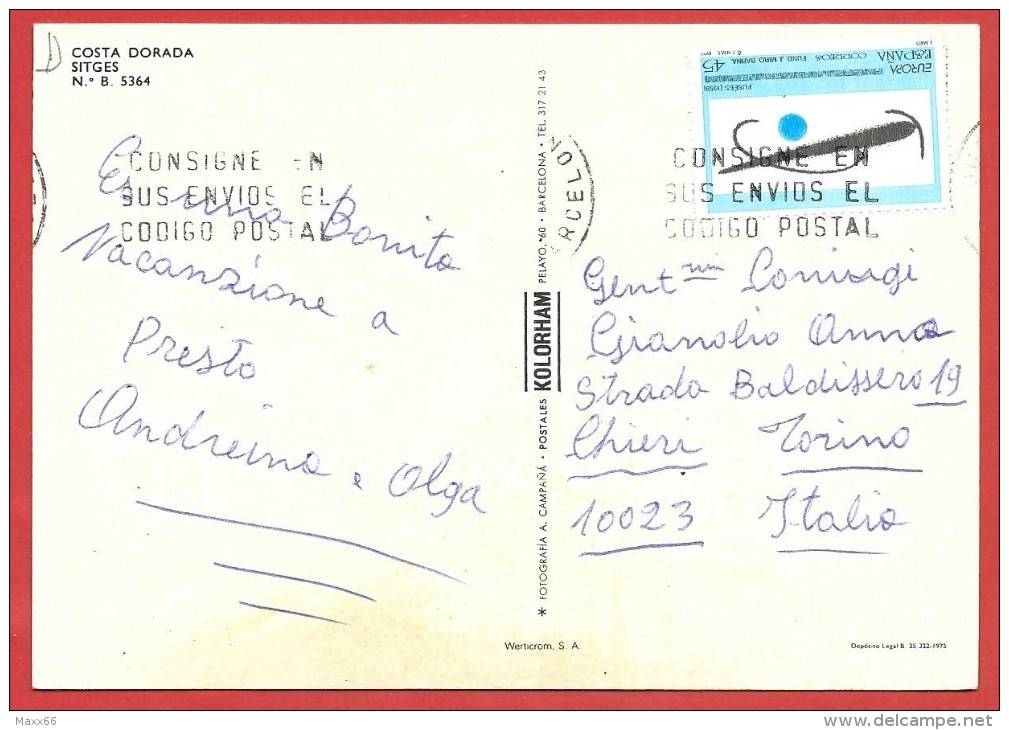 D
COSTA DORADA
SITGES
N.º B. 5364
CONSIGNE EN
SUS ENVIOS EL
CODIGO POSTAL
Es una Bonita
Vacanzione a
Presto
Andreina e Olga
* FOTOGRAFÍA A. CAMPAÑÁ · POSTALES KOLORHAM PELAYO, 60 · BARCELONA · TEL. 317 21 43
EUROPA
ESPAÑA
45
FUSÉES (1959)
J. MIRO
RCELO
CONSIGNE EN
SUS ENVIOS EL
CODIGO POSTAL
Gent mi Coniugi
Gianolio Anna
Strada Baldissero 19
Chieri Torino
10023 Italia
Werticrom, S. A.
Depósito Legal B. 25.322-1975
Maxx66
www.delcampe.net